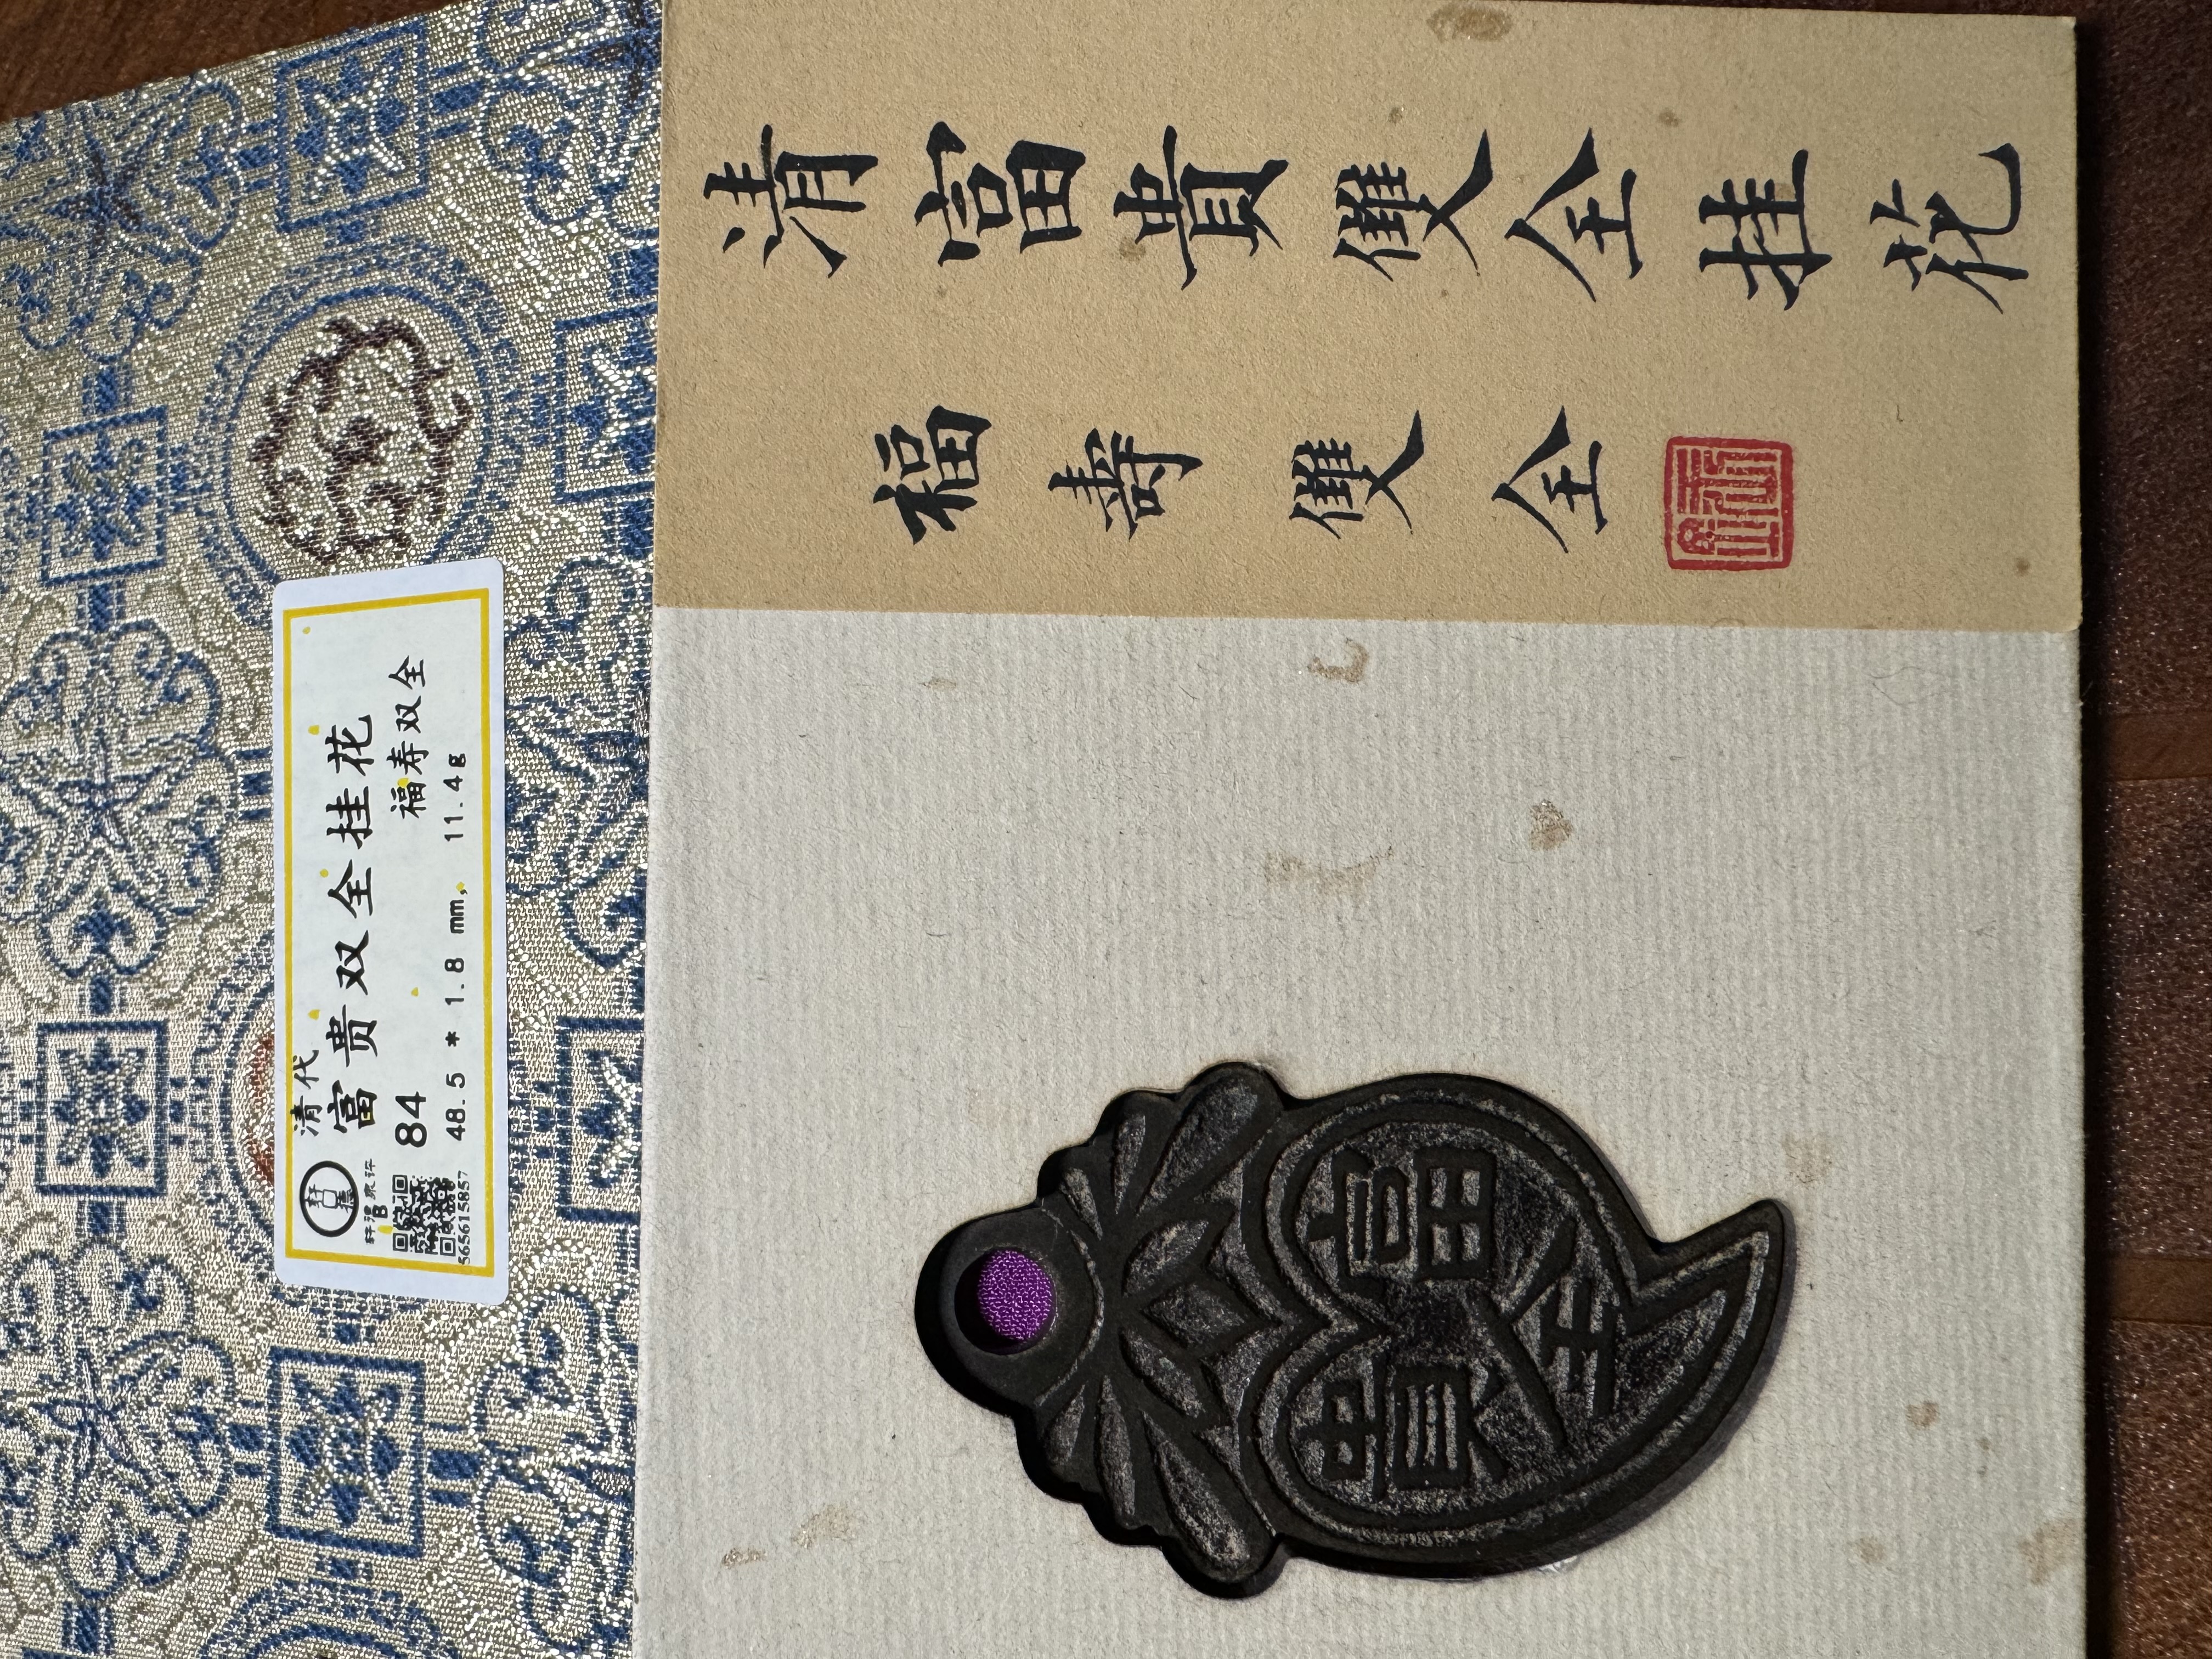 清富貴雙全挂花
福壽雙全
清代
富贵双全挂花
84 福寿双全
48.5 * 1.8 mm, 11.4g
565615857
富貴
全